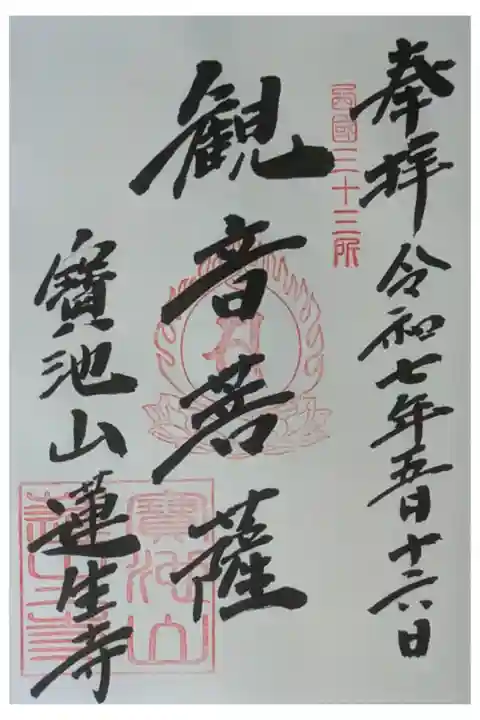 奉拝 令和七年五月十六日
西國三十三所
観音菩薩
寶池山蓮生寺
寶池山
蓮生寺